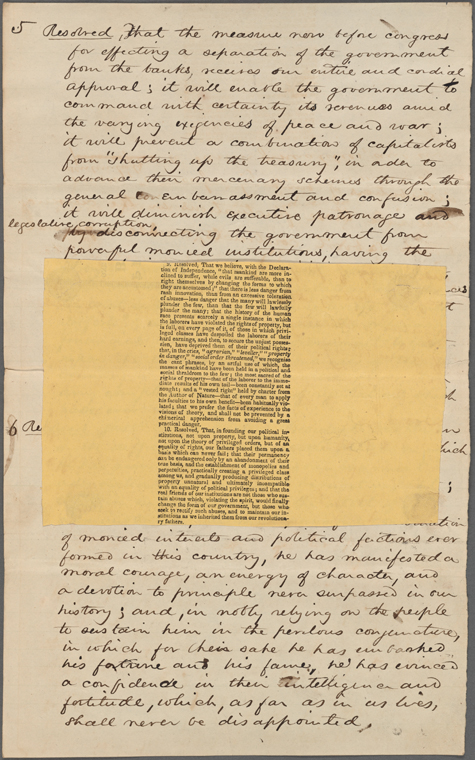 5 Resolved, That the measure now before congress
for effecting a separation of the government
from the banks, receives our entire and cordial
approval; it will enable the government to
command with certainty its revenues amid
the varying exigencies of peace and war;
it will prevent a combination of capitalists
from "shutting up the treasury", in order to
advance their mercenary schemes through the
general embarrassment and confusion;
it will diminish executive patronage and
legislative corruption,
by disconnecting the government from
powerful monied institutions, having the
9. Resolved, That we believe, with the Declara-
tion of Independence, "that mankind are more in-
clined to suffer, while evils are sufferable, than to
right themselves by changing the forms to which
they are accustomed;" that there is less danger from
rash innovation, than from an excessive toleration
of abuses—less danger that the many will lawlessly
plunder the few, than that the few will lawfully
plunder the many; that the history of the human
race presents scarcely a single instance in which
the laborers have violated the rights of property, but
is full, on every page of it, of those in which privi-
leged classes have despoiled the laborers of their
hard earnings, and then, to secure the unjust posses-
sion, have deprived them of their political rights;
that, in the cries, "agrarian," "leveller," "property
in danger," "social order threatened," we recognise
the mere phrases, by an artful use of which, the
masses of mankind have been held in a political and
social thraldom to the few; the most sacred of the
rights of property—that of the laborer to the imme-
diate results of his own toil—been constantly set at
nought; and a "vested right" held by charter from
the Author of Nature—that of every man to apply
his faculties to his own benefit—been habitually vio-
lated; that we prefer the facts of experience to the
visions of theory, and shall not be prevented by a
chimerical apprehension from avoiding a great
practical danger.
10. Resolved, That, in founding our political in-
stitutions, not upon property, but upon humanity,
not upon the theory of privileged orders, but of an
equality of rights, our fathers placed them upon a
basis which can never fail; that their permanency
can be endangered only by an abandonment of their
true basis, and the establishment of monopolies and
perpetuities, practically creating a privileged class
among us, and gradually producing divisions of
property unnatural and ultimately incompatible
with an equality of political privilege; and that the
real friends of our institutions are not those who sus-
tain abuses which, violating the spirit, would finally
change the form of our government, but those who
seek to rectify such abuses, and to maintain our in-
stitutions as we inherited them from our revolutiona-
ry fathers.
6 Re
which
of monied interests and political factions ever
formed in this country, he has manifested a
moral courage, an energy of character, and
a devotion to principle never surpassed in our
history; and, in nobly relying on the people
to sustain him in the perilous conjuncture,
in which for their sake he has embarked
his fortune and his fame, he has evinced
a confidence in their intelligence and
fortitude, which, as far as in us lies,
shall never be disappointed.